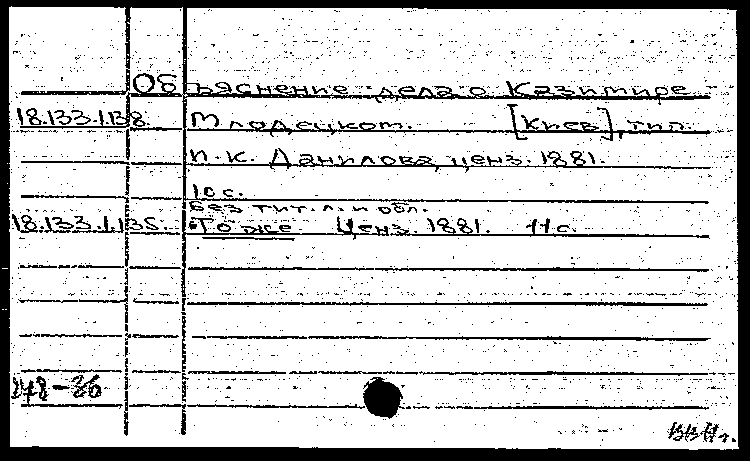 Объяснение дела о Казимире
18.133.1.138. Млодецком. [Киев], тип.
П.К. Данилова, ценз. 1881.
10 с.
Без тит. л. и обл.
18.133.1.135. То же Ценз. 1881. 11 с.
248-36